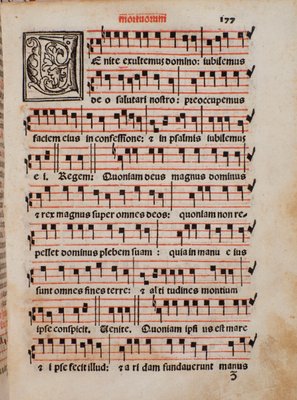 mortuorum 177
Enite exultemus domino: iubilemus
deo salutari nostro: preoccupemus
faciem eius in confessione: & in psalmis iubilemus
ei. Regem: Quoniam deus magnus dominus
& rex magnus super omnes deos: quoniam non re
pellet dominus plebem suam: quia in manu eius
sunt omnes fines terre: & altitudines montium
ipse conspicit. Uenite. Quoniam ipsius est mare
& ipse fecit illud: & aridam fundauerunt manus
3